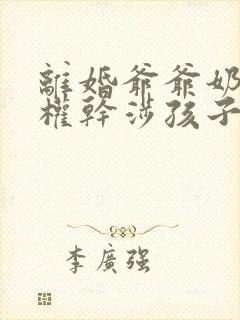 離婚爺爺奶
權幹涉孩子
李廣强